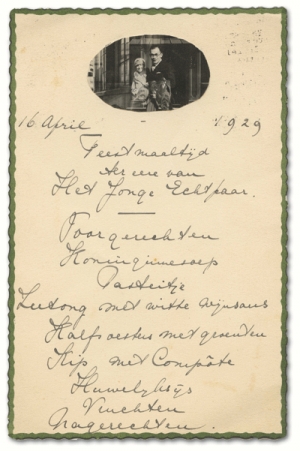 16 April 1929
Feestmaaltijd
ter ere van
Het Jonge Echtpaar.
Voorgerechten
Koninginnesoep
Pasteitje
met witte wijnsaus
met groenten
Kip met Compôte
Huwelyksijs
Vruchten
Nagerechten.